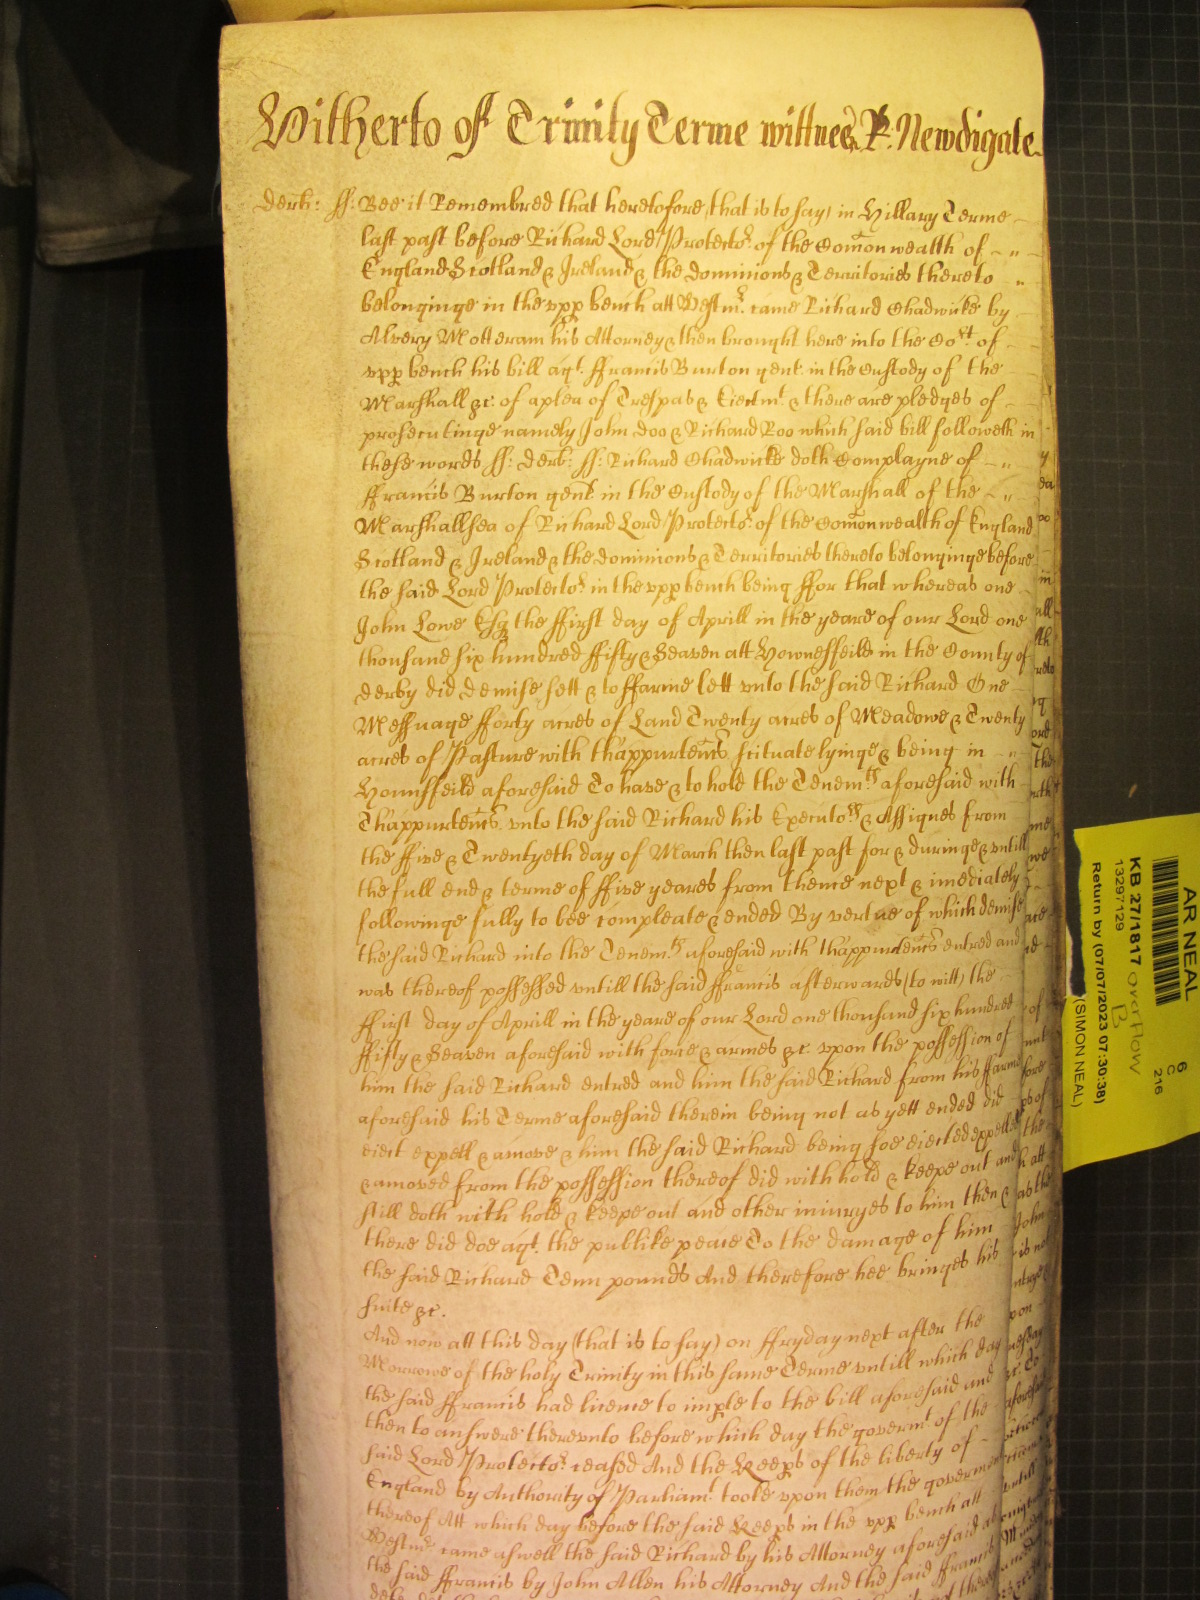 Hitherto of Trinity Terme wittnes R: Newdigate
derb: ss: Bee it Remembred that heretofore (that is to say) in Hillary Terme
last past before Richard Lord Protectoʳ. of the Com̄onwealth of
England Scotland & Ireland & the dominions & Territories thereto
belonginge in the vpp bench att Westmʳ. came Richard Chadwicke by
Alvery Motteram his Attorney & then brought here into the Coʳᵗ. of
vpp bench his bill agᵗ. ffrancis Burton gent in the Custody of the
Marshall &c. of a plea of Trespas & Eiectmᵗ. & there are pledges of
prosecutinge namely John doo & Richard Roo which said bill followeth in
these words ss: derb: ss: Richard Chadwicke doth Complayne of
ffrancis Burton gent in the Custody of the Marshall of the
Marshallsea of Richard Lord Protectoʳ. of the Com̄onwealth of England
Scotland & Ireland & the dominions & Territories thereto belonginge before
the said Lord Protectoʳ. in the vpp bench being ffor that whereas one
John Lowe Esqʳ the ffirst day of Aprill in the yeare of our Lord one
thousand six hundred ffifty & Seaven att Hownesfeild in the County of
derby did demise sett & to ffarme lett vnto the said Richard One
Messuage fforty acres of Land Twenty acres of Meadowe & Twenty
acres of Pasture with thappurtenc̄s scituate lyinge & being in
Hounsfeild aforesaid To have & to hold the Tenemᵗˢ aforesaid with
Thappurtenc̄s vnto the said Richard his Executoʳˢ & Assignes from
the ffive & Twentyeth day of March then last past for & duringe & vntill
the full end & terme of ffive yeares from thence next & imediately
followinge fully to bee compleate & ended By vertue of which demise
the said Richard into the Tenemᵗˢ aforesaid with thappurtenc̄s entred and
was thereof possessed vntill the said ffrancis afterwards (to witt) the
ffirst day of Aprill in the yeare of our Lord one thousand six hundred
ffifty & Seaven aforesaid with force & armes &c. vpon the possession of
him the said Richard entred and him the said Richard from his ffarme
aforesaid his Terme aforesaid therein being not as yett ended did
eiect expell & amove & him the said Richard being soe eiected expelled
& amoved from the possession thereof did with hold & keepe out and
still doth with hold & keepe out and other iniuryes to him then &
there did doe agᵗ. the publike peace To the damage of him
the said Richard Tenn pounds And therefore hee bringes his
suite &c.
And now att this day (that is to say) on ffryday next after the
Morrowe of the holy Trinity in this same Terme vntill which day
the said ffrancis had licence to imple to the bill aforesaid and
then to answere therevnto before which day the governmᵗ. of the
said Lord Protectoʳ. ceased And the Keeps of the liberty of
England by Authority of Parliamᵗ. tooke vpon them the governmᵗ
thereof Att which day before the said Keeps in the vpp bench att
Westmʳ. came aswell the said Richard by his Attorney aforesaid as
the said ffrancis by John Allen his Attorney And the said ffrancis
AR NEAL
KB 27/1817 overflow
B
13297129
Return by (07/07/2023 07:30:38)
(SIMON NEAL)
6
C
216